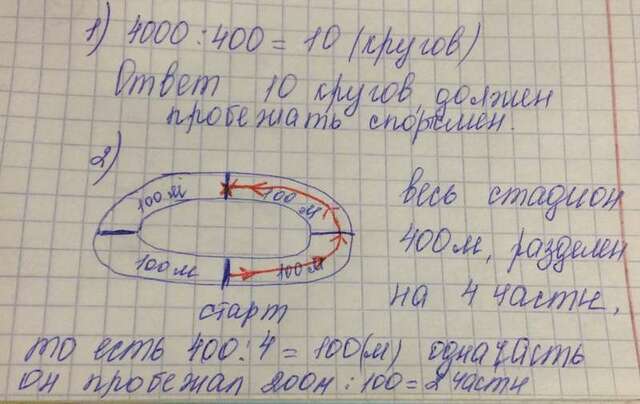 1) 4000 : 400 = 10 (кругов)
Ответ 10 кругов должен
пробежать спортсмен.
2)
100 м 100 м
100 м 100 м
старт
весь стадион
400 м, разделен
на 4 части,
то есть 400 : 4 = 100(м) одна часть
он пробежал 200м : 100 = 2 части